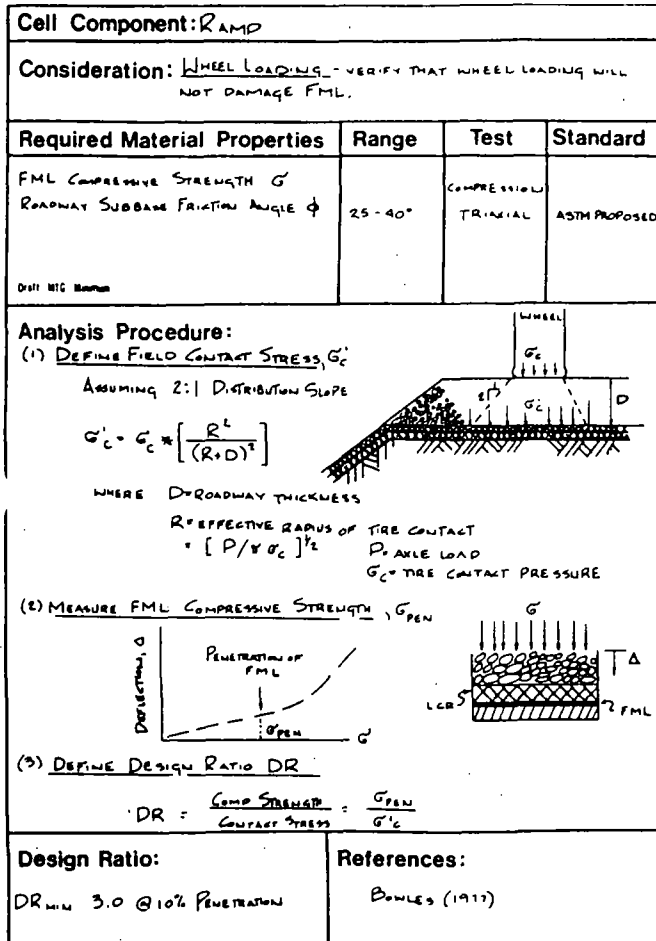 Cell Component: RAMP
Consideration: WHEEL LOADING - VERIFY THAT WHEEL LOADING WILL
NOT DAMAGE FML.
Required Material Properties Range Test Standard
FML COMPRESSIVE STRENGTH σ COMPRESSION
ROADWAY SUBBASE FRICTION ANGLE ϕ 25-40° TRIAXIAL ASTM PROPOSED
Draft MTG
Analysis Procedure:
(1) DEFINE FIELD CONTACT STRESS, σc'
ASSUMING 2:1 DISTRIBUTION SLOPE
σc' = σc * [R² / (R+D)²]
WHERE D=ROADWAY THICKNESS
R=EFFECTIVE RADIUS OF TIRE CONTACT
= [P/γ σc]^½ P=AXLE LOAD
σc=TIRE CONTACT PRESSURE
WHEEL
σc
2
1
σc'
D
(2) MEASURE FML COMPRESSIVE STRENGTH, σPEN
DEFLECTION, Δ
PENETRATION OF
FML
σPEN
σ
σ
Δ
LCR
FML
(3) DEFINE DESIGN RATIO DR
DR = COMP STRENGTH / CONTACT STRESS = σPEN / σ'c
Design Ratio:
DR MIN 3.0 @ 10% PENETRATION
References:
BOWLES (1977)